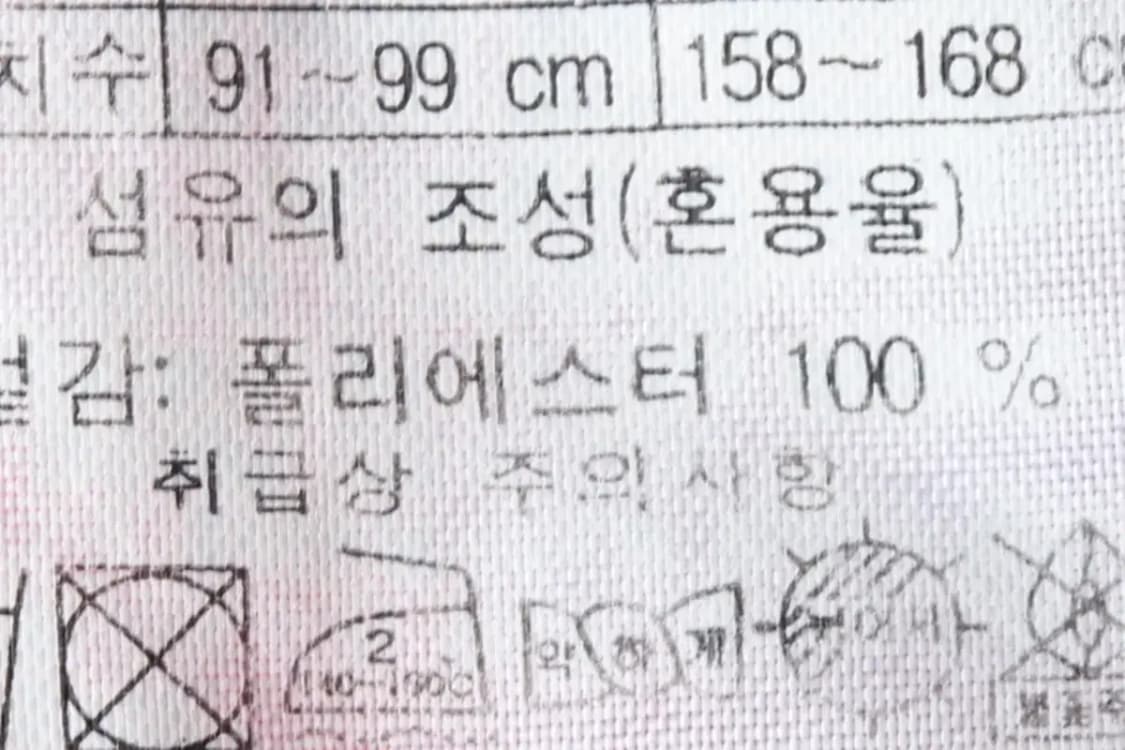 치수 91~99 cm 158~168 cm
섬유의 조성(혼용율)
겉감: 폴리에스터 100 %
취급상 주의사항
2
약 하 게